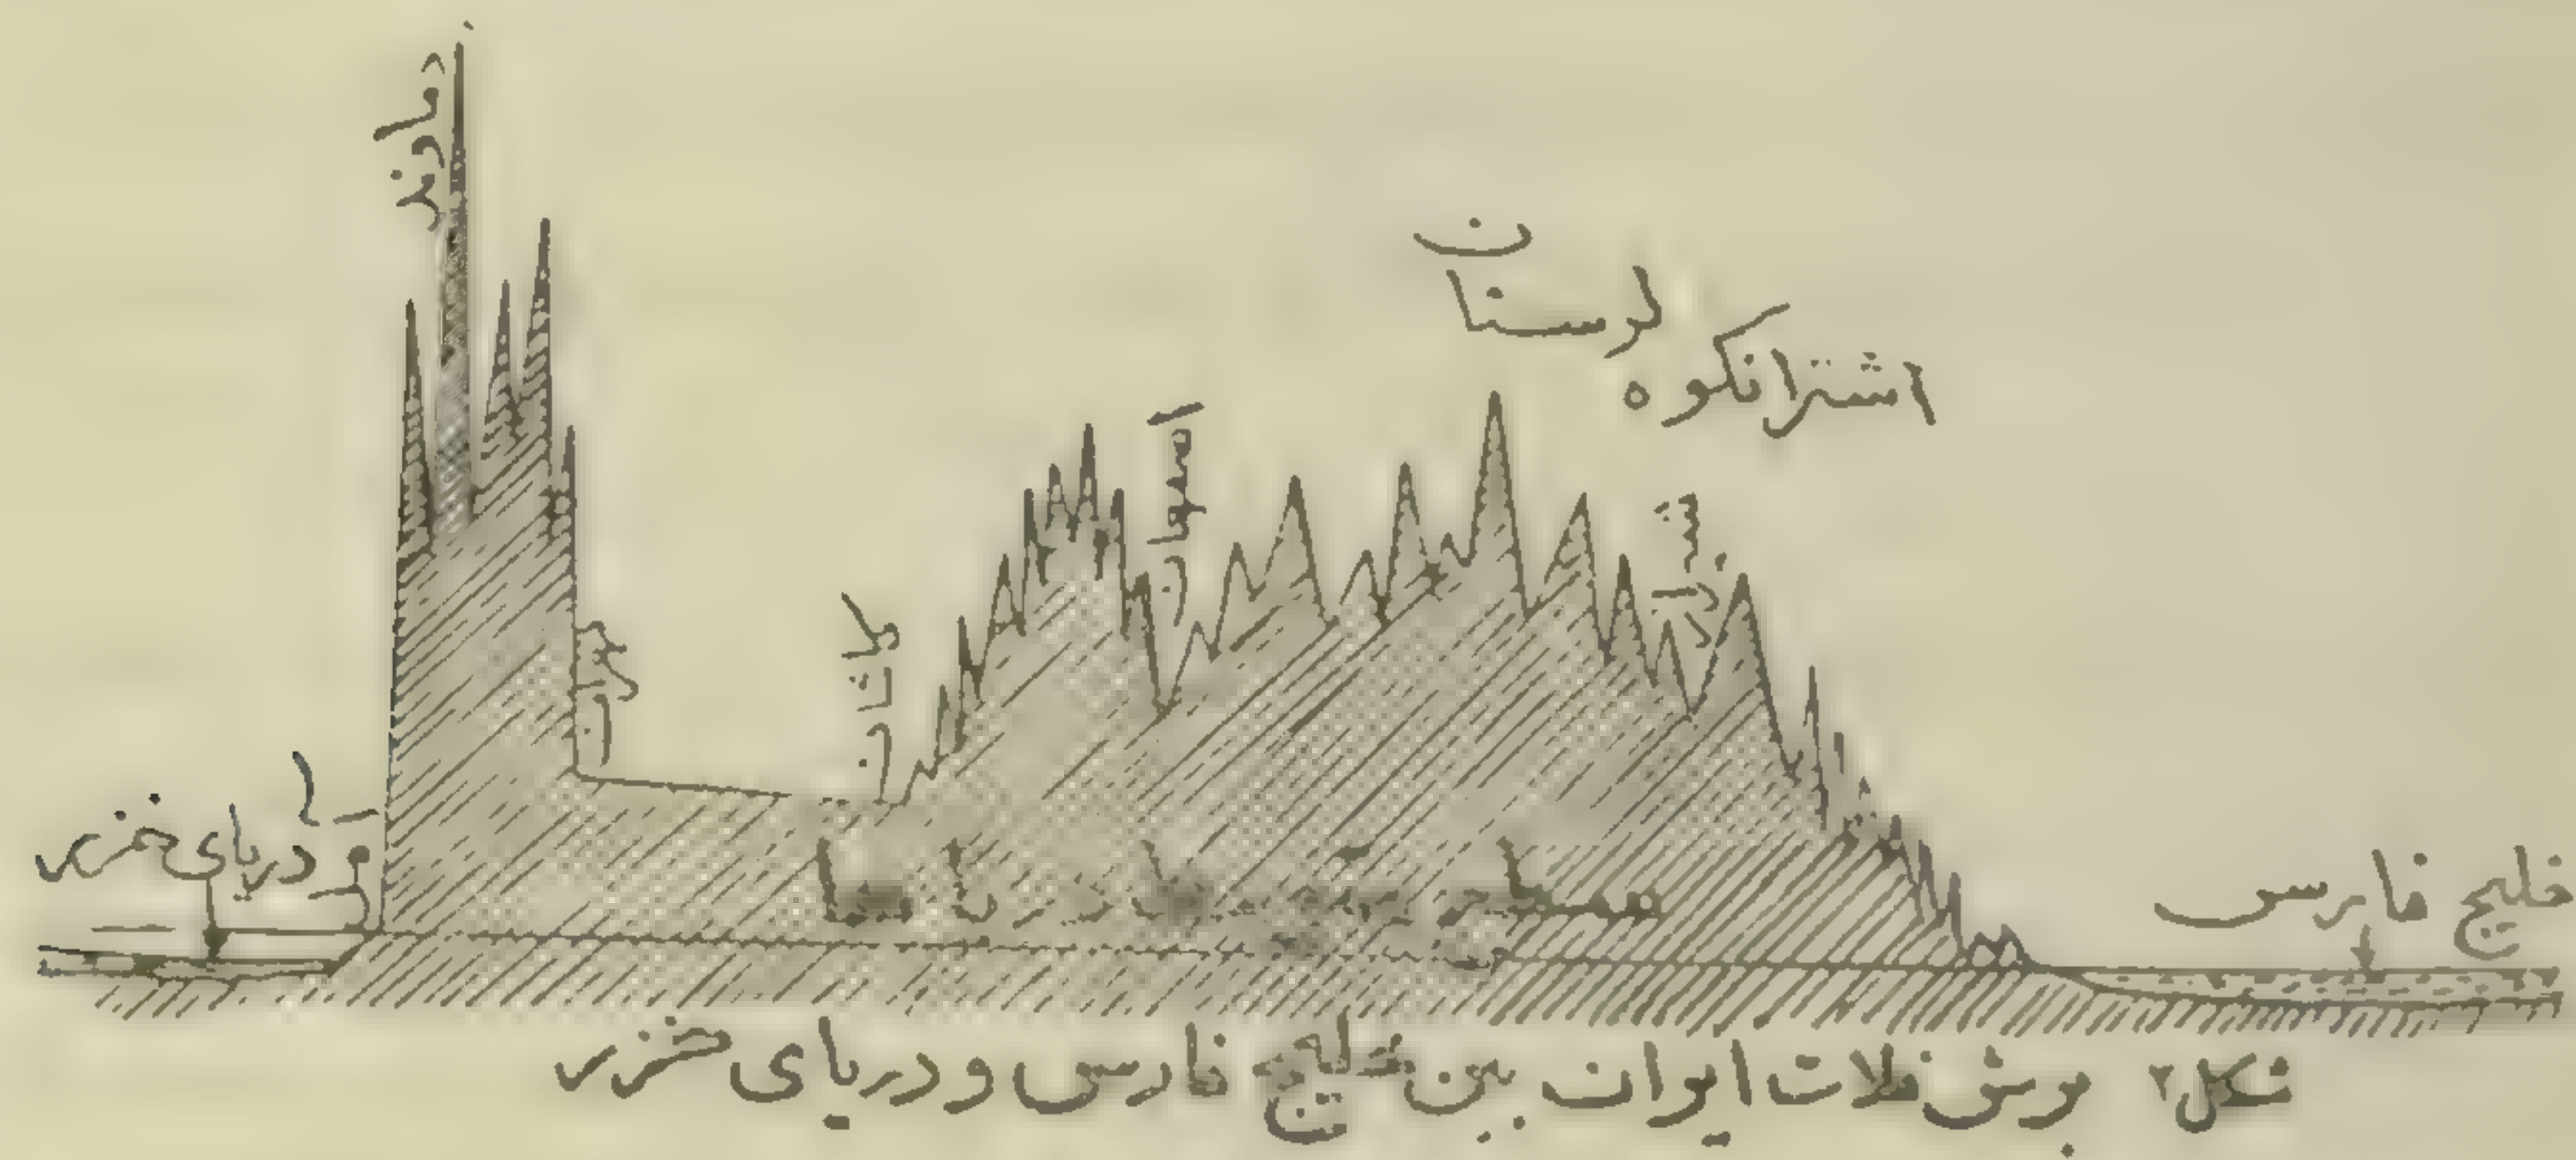 دماوند
لرستان
اشترانکوه
اصفهان
شیراز
کاشان
دریای خزر
خلیج فارس
شکل ۲ برش فلات ایران بین خلیج فارس و دریای خزر